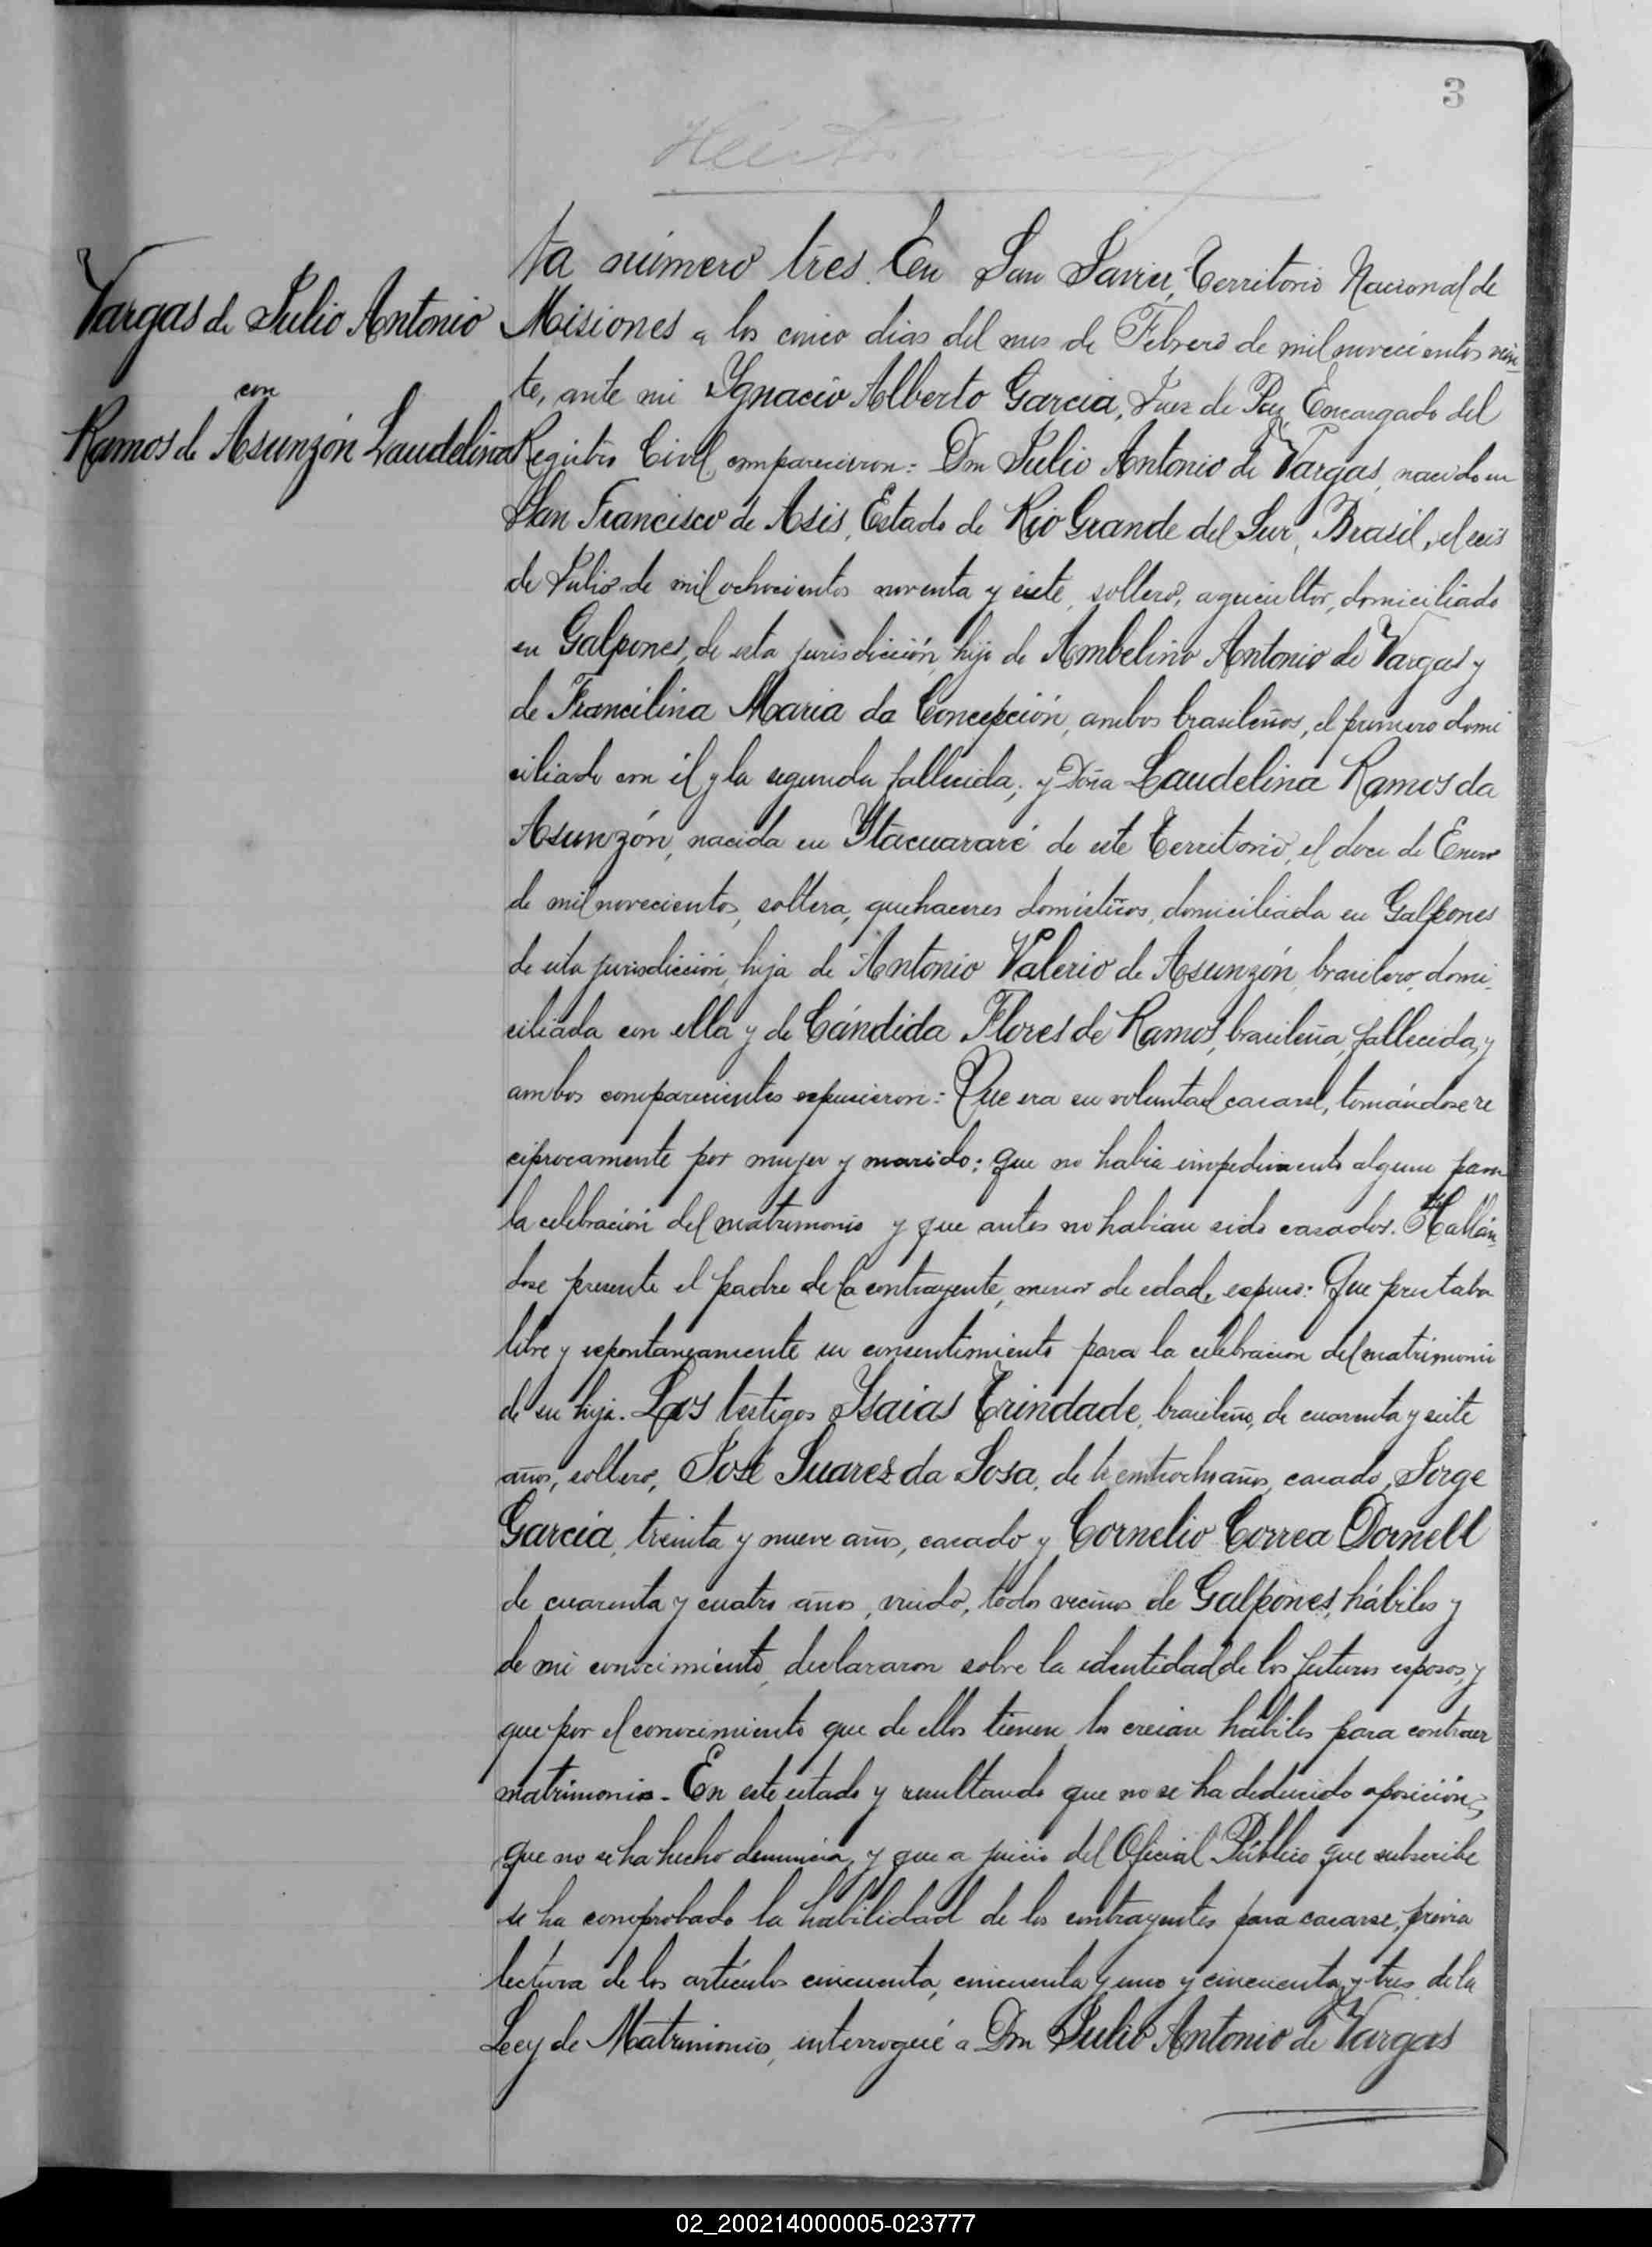 3
Vargas de Julio Antonio
con
Ramos de Asunzón Laudelina
ta número tres. En San Javier, Territorio Nacional de
Misiones a los cinco dias del mes de Febrero de mil novecientos vein
te, ante mi Ygnacio Alberto Garcia, Juez de Paz Encargado del
Registro Civil, comparecieron: Don Julio Antonio de Vargas, nacido en
San Francisco de Asis, Estado de Rio Grande del Sur, Brasil, el seis
de Julio de mil ochocientos noventa y siete, soltero, agricultor, domiciliado
en Galpones, de esta jurisdicción, hijo de Ambelino Antonio de Vargas y
de Francilina Maria da Concepción, ambos brasileños, el primero domi
ciliado con él y la segunda fallecida; y Doña Laudelina Ramos da
Asunzón, nacida en Ytacuararé de este Territorio, el doce de Enero
de mil novecientos, soltera, quehaceres domésticos, domiciliada en Galpones
de esta jurisdicción, hija de Antonio Valerio de Asunzón, brasilero, domi-
ciliada con ella y de Cándida Flores de Ramos, brasileña, fallecida, y
ambos comparecientes expusieron: Que era su voluntad casarse, tomándose re
ciprocamente por mujer y marido; que no habia impedimento alguno para
la celebración del matrimonio y que antes no habian sido casados. Hallán-
dose presente el padre de la contrayente, menor de edad, expuso: Que prestaba
libre y espontaneamente su consentimiento para la celebracion del matrimonio
de su hija. Los testigos Ysaias Trindade, brasileño, de cuarenta y siete
años, soltero, José Suarez da Sosa, de treintiocho años, casado, Jorge
Garcia, treinta y nueve años, casado y Cornelio Correa Dornell
de cuarenta y cuatro años, viudo, todos vecinos de Galpones, hábiles y
de mi conocimiento, declararon sobre la identidad de los futuros esposos, y
que por el conocimiento que de ellos tienen los creian hábiles para contraer
matrimonio. En este estado y resultando que no se ha deducido oposición,
que no se ha hecho denuncia, y que a juicio del Oficial Público que subscribe
se ha comprobado la habilidad de los contrayentes para casarse, previa
lectura de los artículos cincuenta, cincuenta y uno y cincuenta y tres de la
Ley de Matrimonio, interrogué a Don Julio Antonio de Vargas
02_200214000005-023777